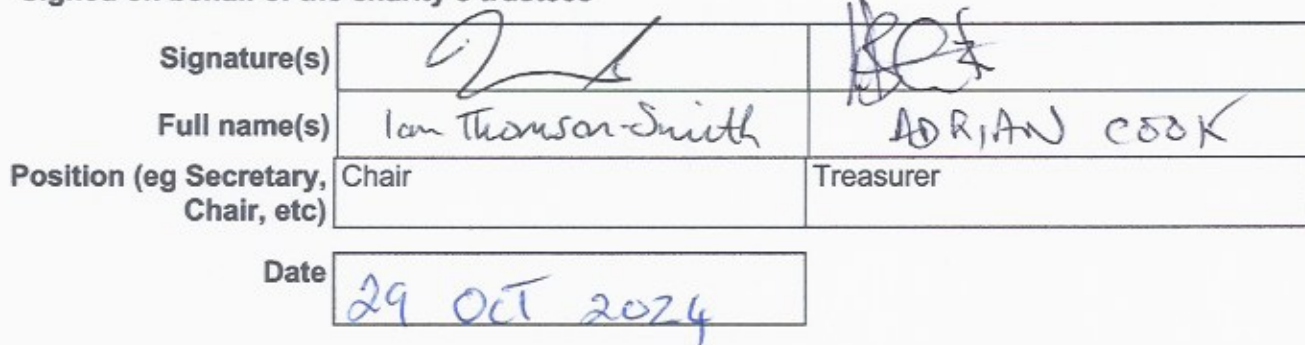 Signed on behalf of the charity's trustees
Signature(s)
Full name(s) Ian Thomson-Smith ADRIAN COOK
Position (eg Secretary, Chair Treasurer
Chair, etc)
Date 29 OCT 2024